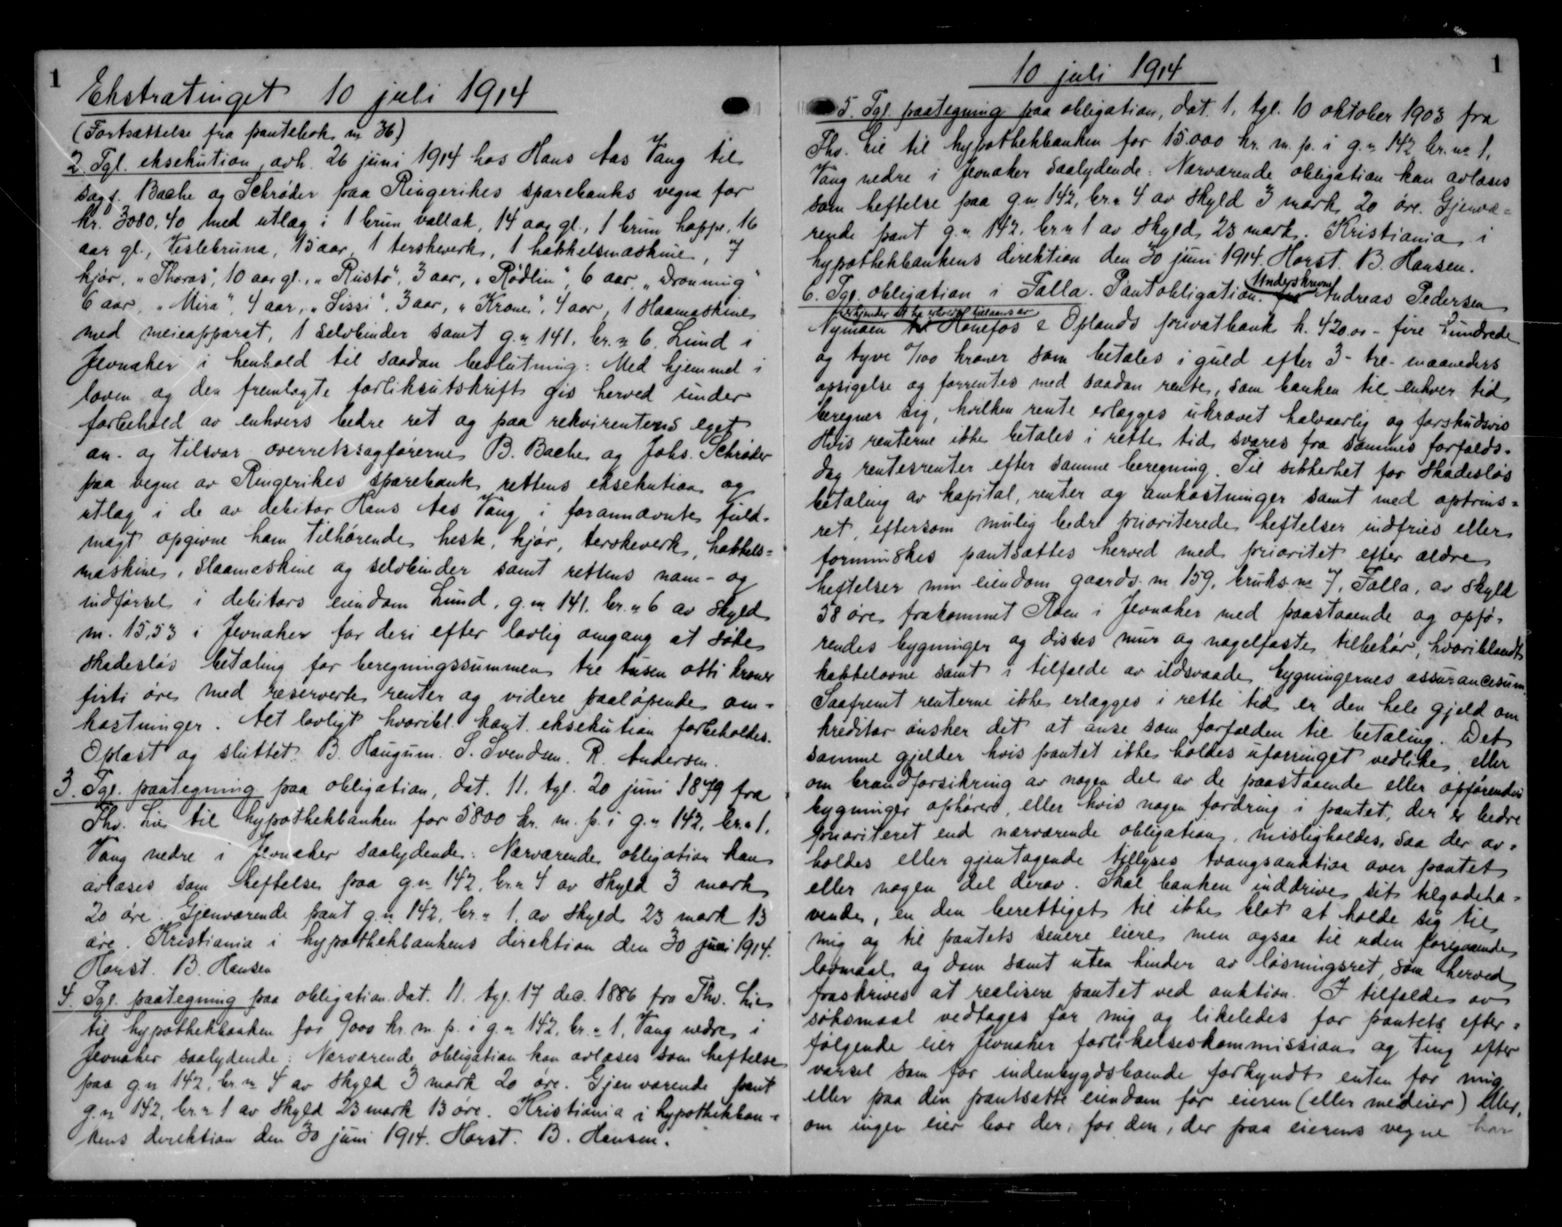 1
Ekstratinget 10 juli 1914
(Fortsættelse fra pantebok nr 36)
2. Tgl. eksekution, avh. 26 juni 1914 hos Hans Aas Vang til
sagf. Bache og Schrøder paa Ringerikes sparebanks vegne for
kr. 3080,40 med utlæg i 1 brun vallak, 14 aar gl., 1 brun hoppe, 16
aar gl., Veslebruna, 15 aar, 1 terskeverk, 1 hakkelsmaskine, 7
kjør, „Thoras", 10 aar gl., „Rusta", 3 aar, „Rødlin", 6 aar „Dronning"
6 aar, „Mira", 4 aar, „Sissi", 3 aar, „Krone", 4 aar, 1 slaamaskine
med meieapparat, 1 selvbinder samt g.nr 141, br.nr 6 Lund i
Jevnaker i henhold til saadan beslutning: Med hjemmel i
loven og den fremlagte forliksutskrift gis herved under
forbehold av enhvers bedre ret og paa rekvirentens eget
an- og tilsvar overretssagførerne B. Bache og Johs. Schrøder
paa vegne av Ringerikes sparebank rettens eksekution og
utlæg i de av debitor Hans Aas Vang i forannævnte fuld-
magt opgivne ham tilhørende heste, kjør, terskeverk, hakkels=
maskine, slaamaskine og selvbinder samt rettens nam- og
indførsel i debitors eiendom Lund, g.nr 141, br.nr 6 av skyld
m. 15,53 i Jevnaker for deri efter lovlig omgang at søke
skadesløs betaling for beregningssummen tre tusen otti kroner
firti øre med reserverte renter og videre paaløpende om-
kostninger. Alt lovligt hvoribl. kont. eksekution forbeholdes.
Oplæst og sluttet. B Haugum. S. Svendsen. R. Andersen.
3. Tgl. paategning paa obligation, dat. 11. tgl. 20 juni 1879 fra
Thv. Lie til hypothekbanken for 5800 kr. m. p. i g.nr 142, br.nr 1,
Vang nedre i Jevnaker saalydende: Nærværende obligation kan
avlæses som heftelse paa g.nr 142, br.nr 4 av skyld 3 mark
20 øre. Gjenværende pant g.nr 142, br.nr 1, av skyld 23 mark 13
øre. Kristiania i hypothekbankens direktion den 30 juni 1914.
Horst. B. Hansen
4. Tgl. paategning paa obligation dat. 11. tgl. 17 dec. 1886 fra Thv. Lie
til hypothekbanken for 9000 kr. m. p. i g.nr 142, br.nr 1, Vang nedre i
Jevnaker saalydende: Nærværende obligation kan avlæses som heftelse
paa g.nr 142, br.nr 4 av skyld 3 mark 20 øre. Gjenværende pant
g.nr 142, br.nr 1 av skyld 23 mark 13 øre. Kristiania i hypothekban-
kens direktion den 30 juni 1914. Horst. B. Hansen.
10 juli 1914
1
5. Tgl paategning paa obligation, dat. 1, tgl. 10 oktober 1903 fra
Thv. Lie til hypothekbanken for 15.000 kr. m. p. i g.nr 142 br. nr 1,
Vang nedre i Jevnaker saalydende: Nærværende obligation kan avlæses
som heftelse paa g.nr 142, br.nr 4 av skyld 3 mark 20 øre. Gjenvæ-
rende pant g.nr 142, br.nr 1 av skyld 23 mark. Kristiania i
hypothekbankens direktion den 30 juni 1914. Horst. B. Hansen.
6. Tgl. obligation i Falla. Pantobligation. Underskrevne Andreas Pedersen
erkjender at være skyldig
Nymoen Hønefos & Oplands privatbank k. 420,00 - fire hundrede
og tyve 0/100 kroner som betales i guld efter 3- tre- maaneders
opsigelse og forrentes med saadan rente, som banken til enhver tid
beregner sig, hvilken rente erlægges ukrævet halvaarlig og forskudsvis
Hvis renterne ikke betales i rette tid svares fra sammes forfalds-
dag rentesrenter efter samme beregning. Til sikkerhet for skadesløs
betaling av kapital, renter og omkostninger samt med optrins=
ret, eftersom mulig bedre prioriterede heftelser indfries eller
forminskes pantsættes herved med prioritet efter ældre
heftelser min eiendom gaards nr 159, bruks nr 7, Falla, av skyld
58 øre frakommet Roen i Jevnaker med paastaaende og opfø-
rendes bygninger og disses mur og nagelfaste tilbehør, hvoriblandt
kakkelovne samt i tilfælde av ildsvaade bygningernes assurancesum
Saafremt renterne ikke erlægges i rette tid er den hele gjæld om
kreditor ønsker det at anse som forfalden til betaling. Det
samme gjelder hvis pantet ikke holdes uforringet vedlike, eller
om brandforsikring av nogen del av de paastaaende eller opførendes
bygninger ophører, eller hvis nogen fordring i pantet, der er bedre
prioriteret end nærværende obligation, misligholdes, saa der av-
holdes eller gjentagende tillyses tvangsauktion over pantet
eller nogen del derav. Skal banken inddrive sit tilgodeha-
vende, er den berettiget til ikke blot at holde sig til
mig og til pantets senere eiere men ogsaa til uden foregaaende
lovmaal og dom samt uten hinder av løsningsret, som herved
fraskrives at realisere pantet ved auktion. I tilfælde av
søksmaal vedtages for mig og likeledes for pantets efter-
følgende eier Jevnaker forlikelseskommission og ting efter
varsel som for indenbygdsboende forkyndt enten for mig
eller paa den pantsatte eiendom for eieren (eller medeier) eller,
om ingen eier bor der, for den, der paa eierens vegne har